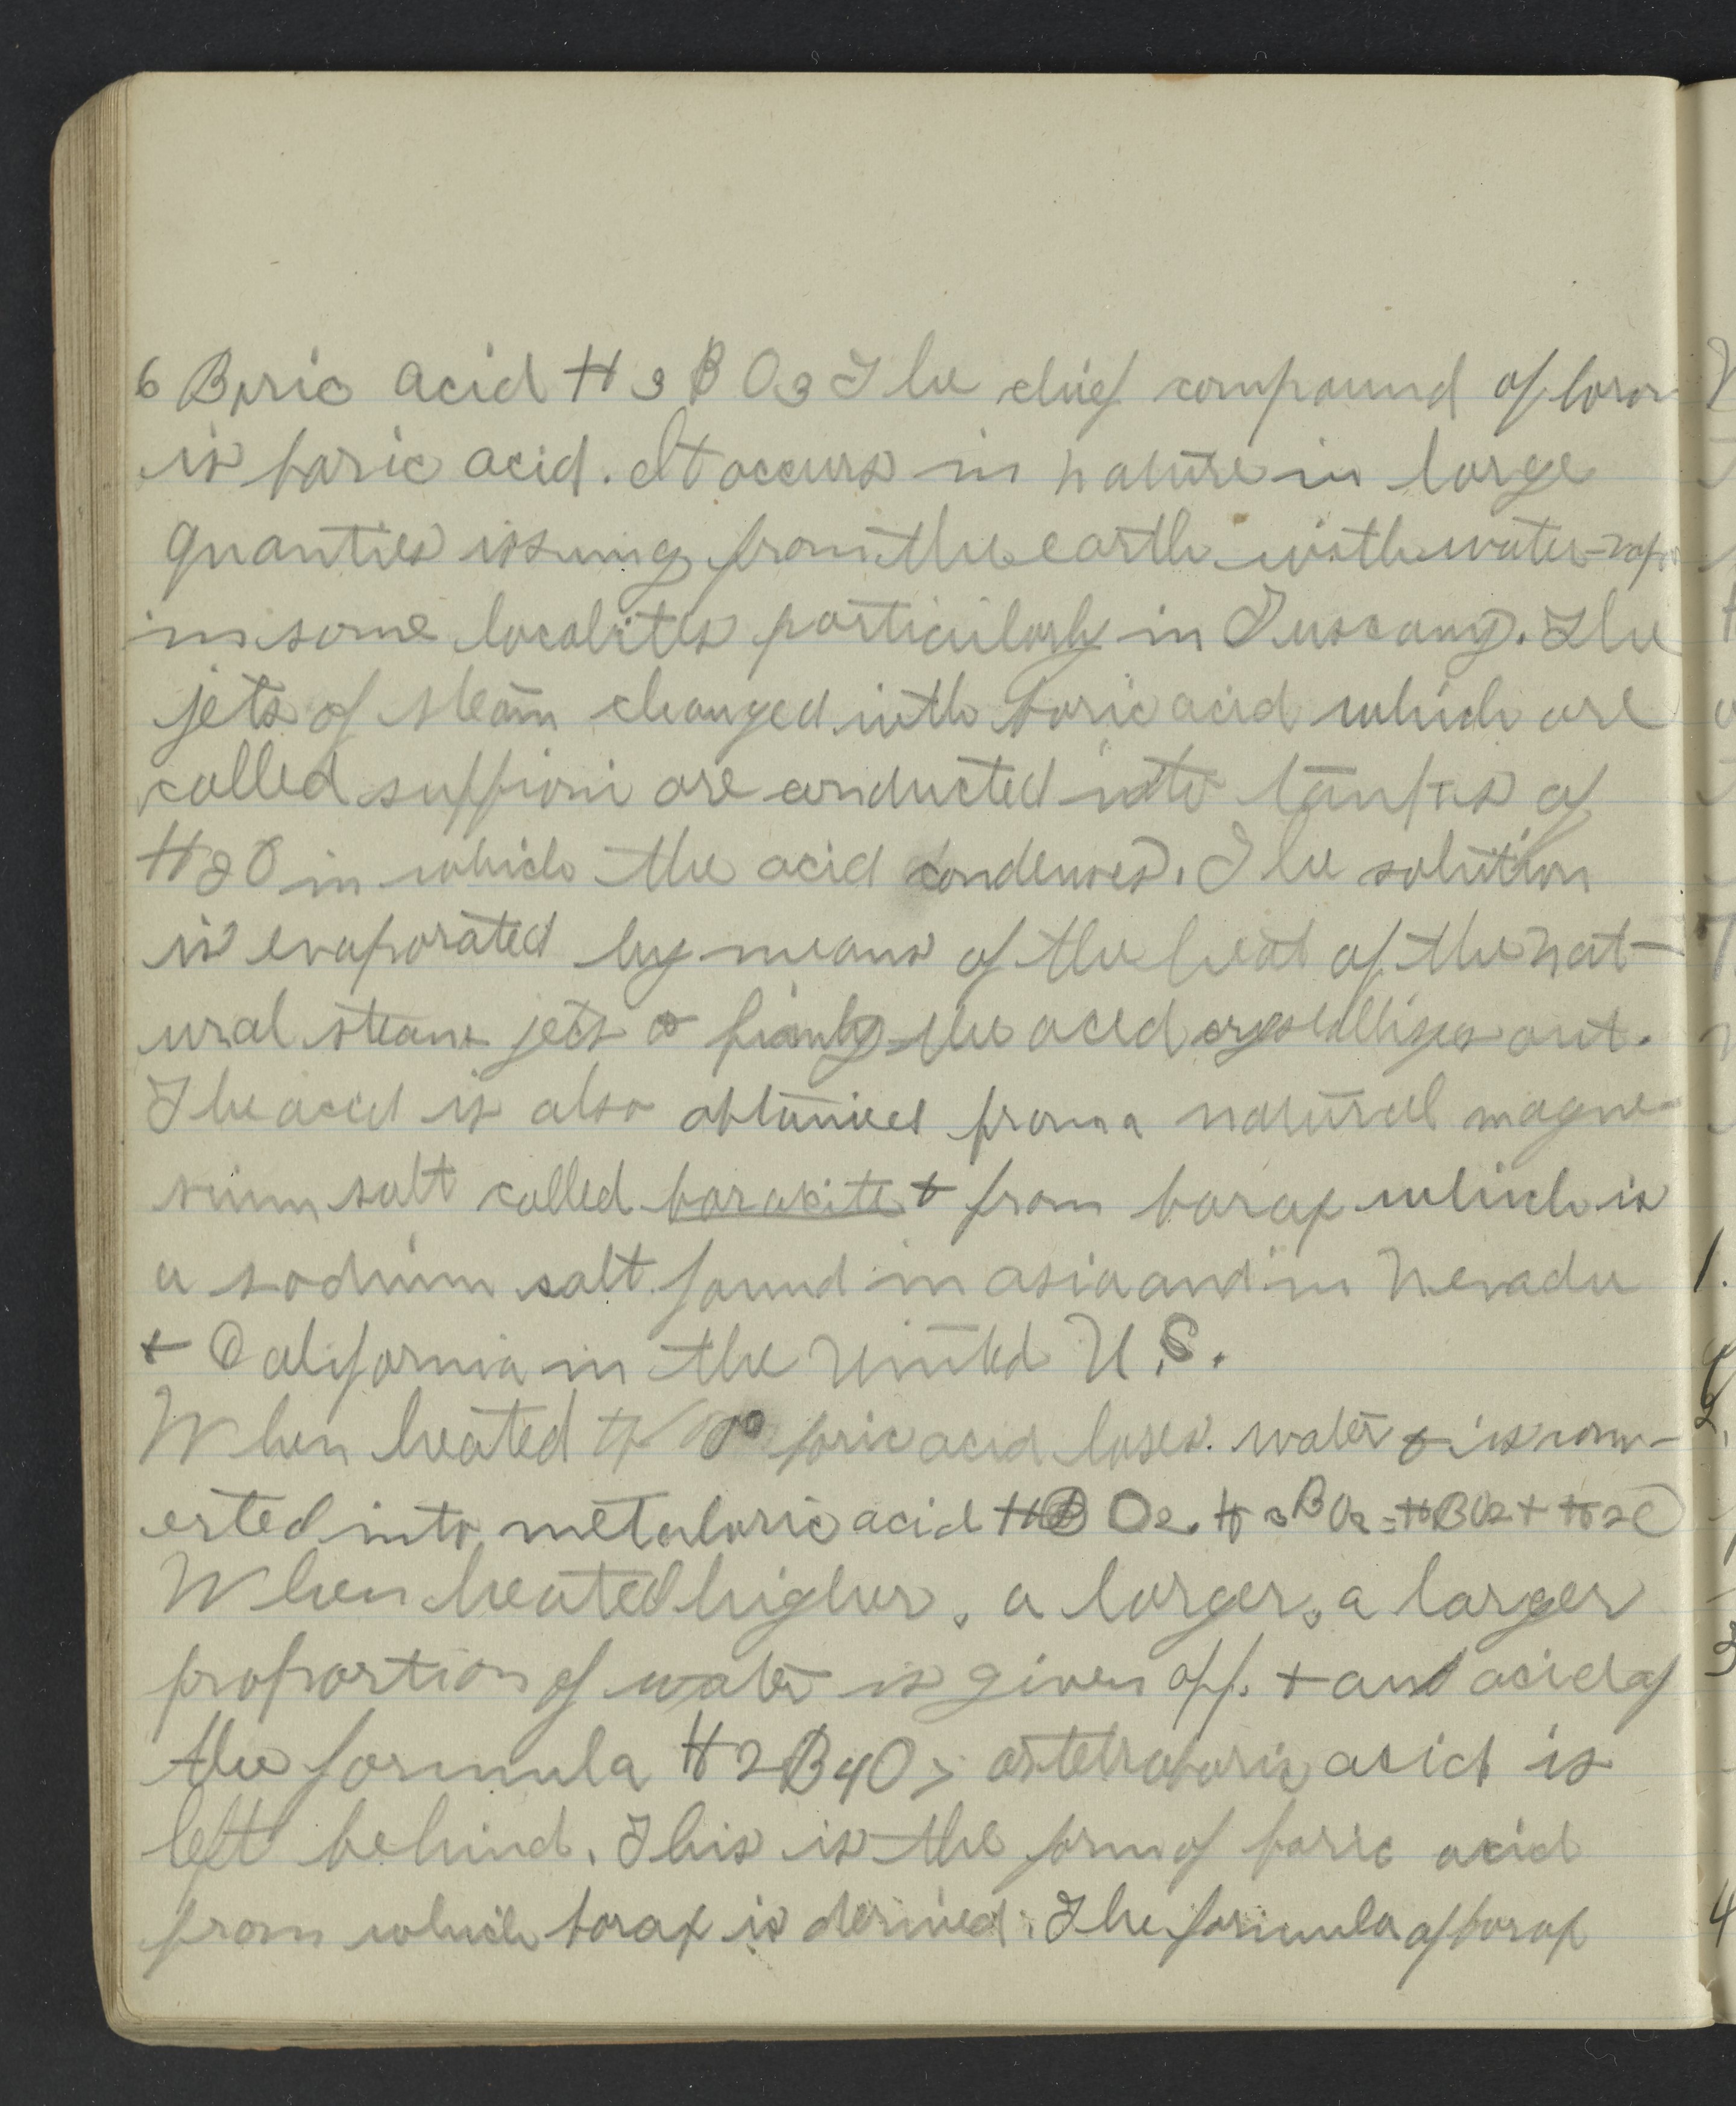 6 Boric acid H3BO3 The chief compound of boron
is boric acid. It occurs in nature in large
quanties issuing from the earth with water-vapor
in some localites particularly in Tuscany. The
jets of steam changed with boric acid which are
called suffioni are conducted into tanks of
H2O in which the acid condenses. The solution
is evaporated by means of the heat of the nat-
ural steam jets & fianly the acid crystallizes out.
The acid is also obtained from a natural magne-
sium salt called boracite + from borax which is
a sodium salt found in asia and in Nevada
+ California in the United U.S.
When heated to boric acid loses water & is conv-
erted into metaboric acid HBO2. H3BO3=HBO2+H2O
When heated higher, a larger, a larger
proportion of water is given off. + and acid of
the formula H2B4O7 or tetraboric acid is
left behind. This is the form of boric acid
from which borax is derived. The formula of borax
1.
2.
3
4